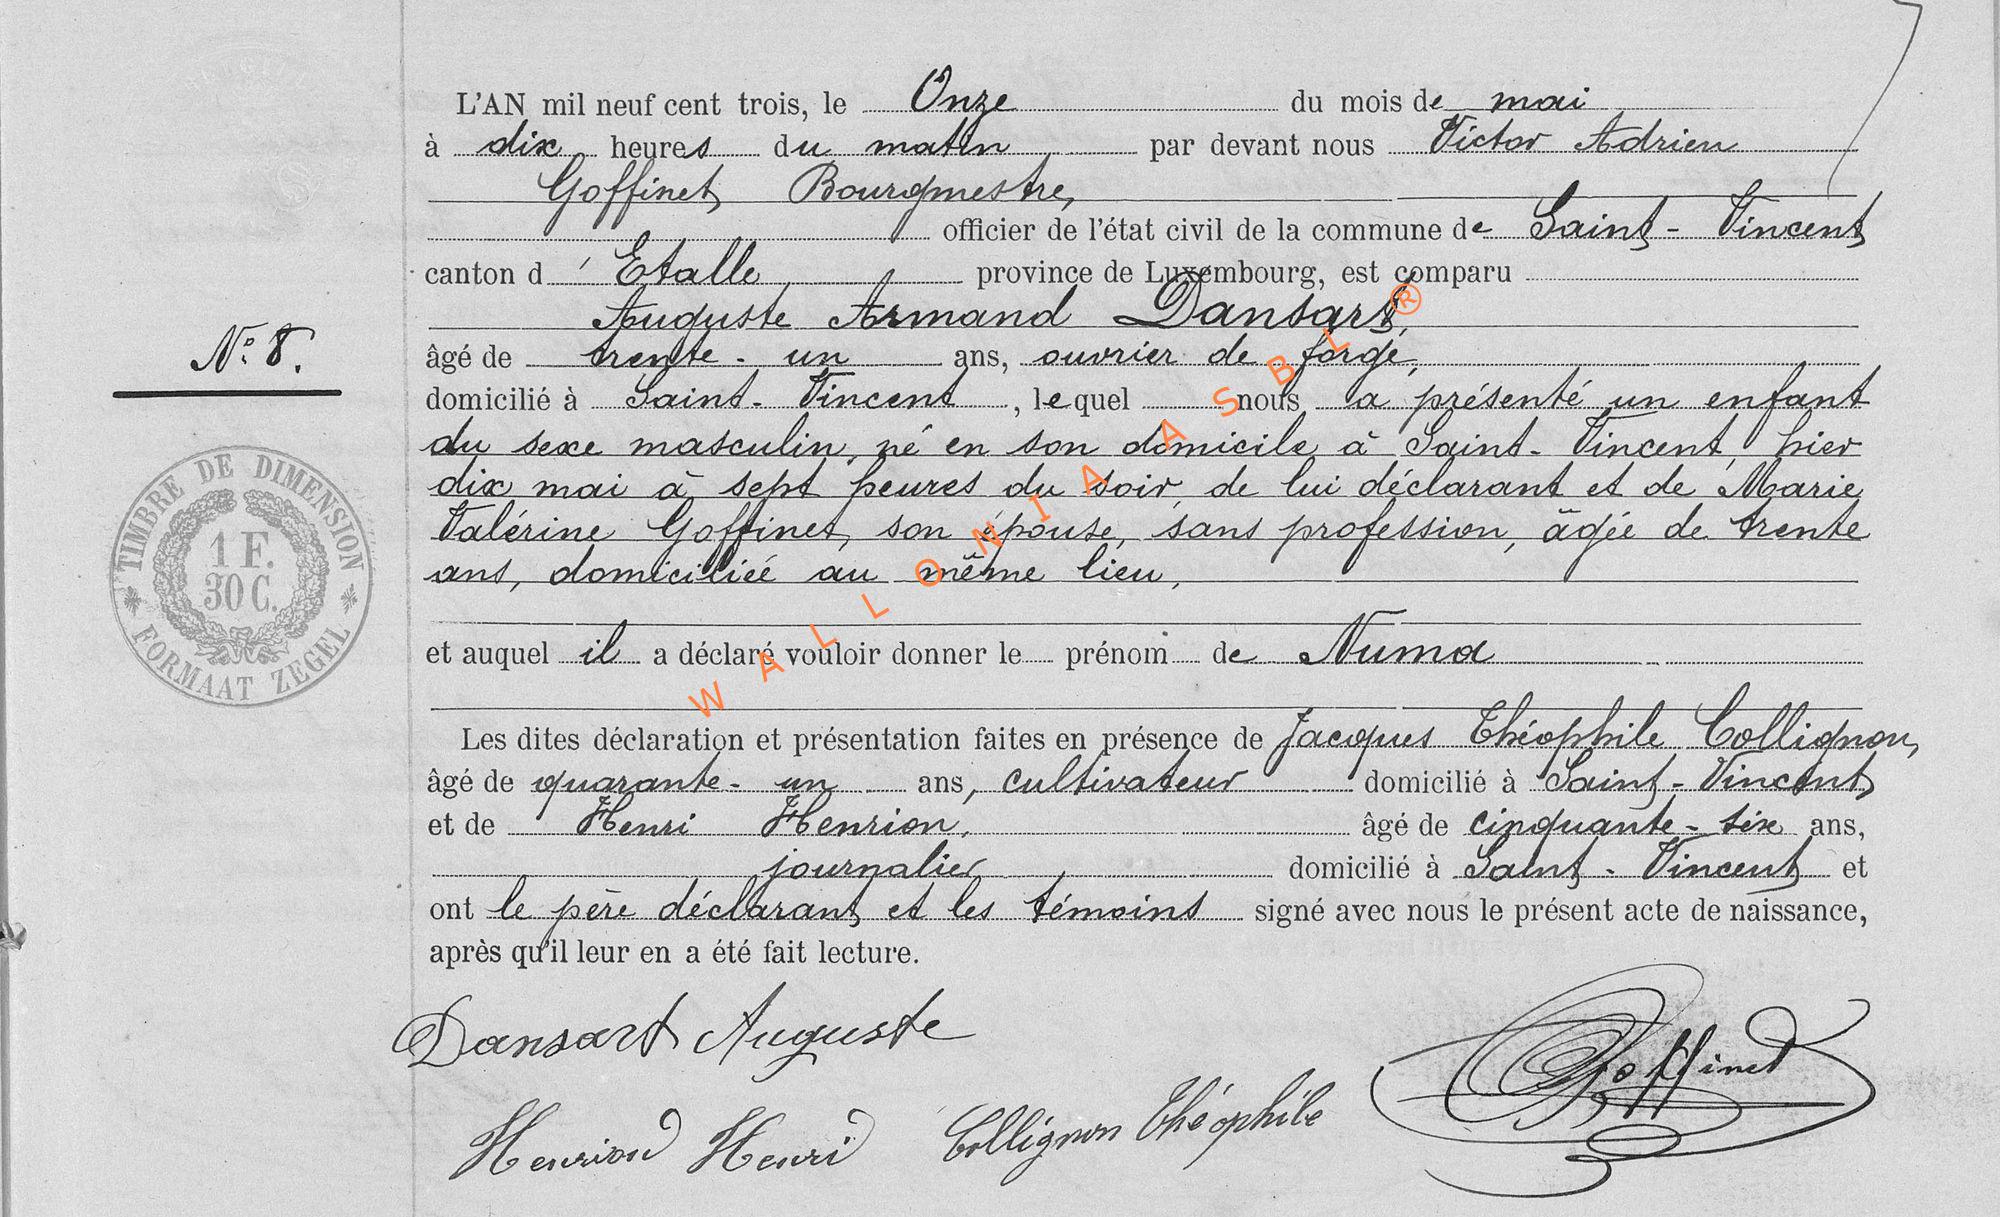 L'AN mil neuf cent trois, le Onze du mois de mai
à dix heures du matin par devant nous Victor Adrien
Goffinet, Bourgmestre,
officier de l'état civil de la commune de Saint-Vincent
canton d'Etalle province de Luxembourg, est comparu
Auguste Armand Dansart,
N° 8.
âgé de trente-un ans, ouvrier de forge,
domicilié à Saint-Vincent, lequel nous a présenté un enfant
du sexe masculin, né en son domicile à Saint-Vincent, hier
dix mai à sept heures du soir, de lui déclarant et de Marie
Valérine Goffinet, son épouse, sans profession, âgée de trente
ans, domiciliée au même lieu,
TIMBRE DE DIMENSION
1 F.
30 C.
FORMAAT ZEGEL
et auquel il a déclaré vouloir donner le prénom de Numa
Les dites déclaration et présentation faites en présence de Jacques Théophile Collignon,
âgé de quarante-un ans, cultivateur domicilié à Saint-Vincent,
et de Henri Henrion, âgé de cinquante-six ans,
journalier domicilié à Saint-Vincent et
ont le père déclarant et les témoins signé avec nous le présent acte de naissance,
après qu'il leur en a été fait lecture.
Dansart Auguste
Goffinet
Henrion Henri Collignon Théophile
WALLONIA ASBL ®